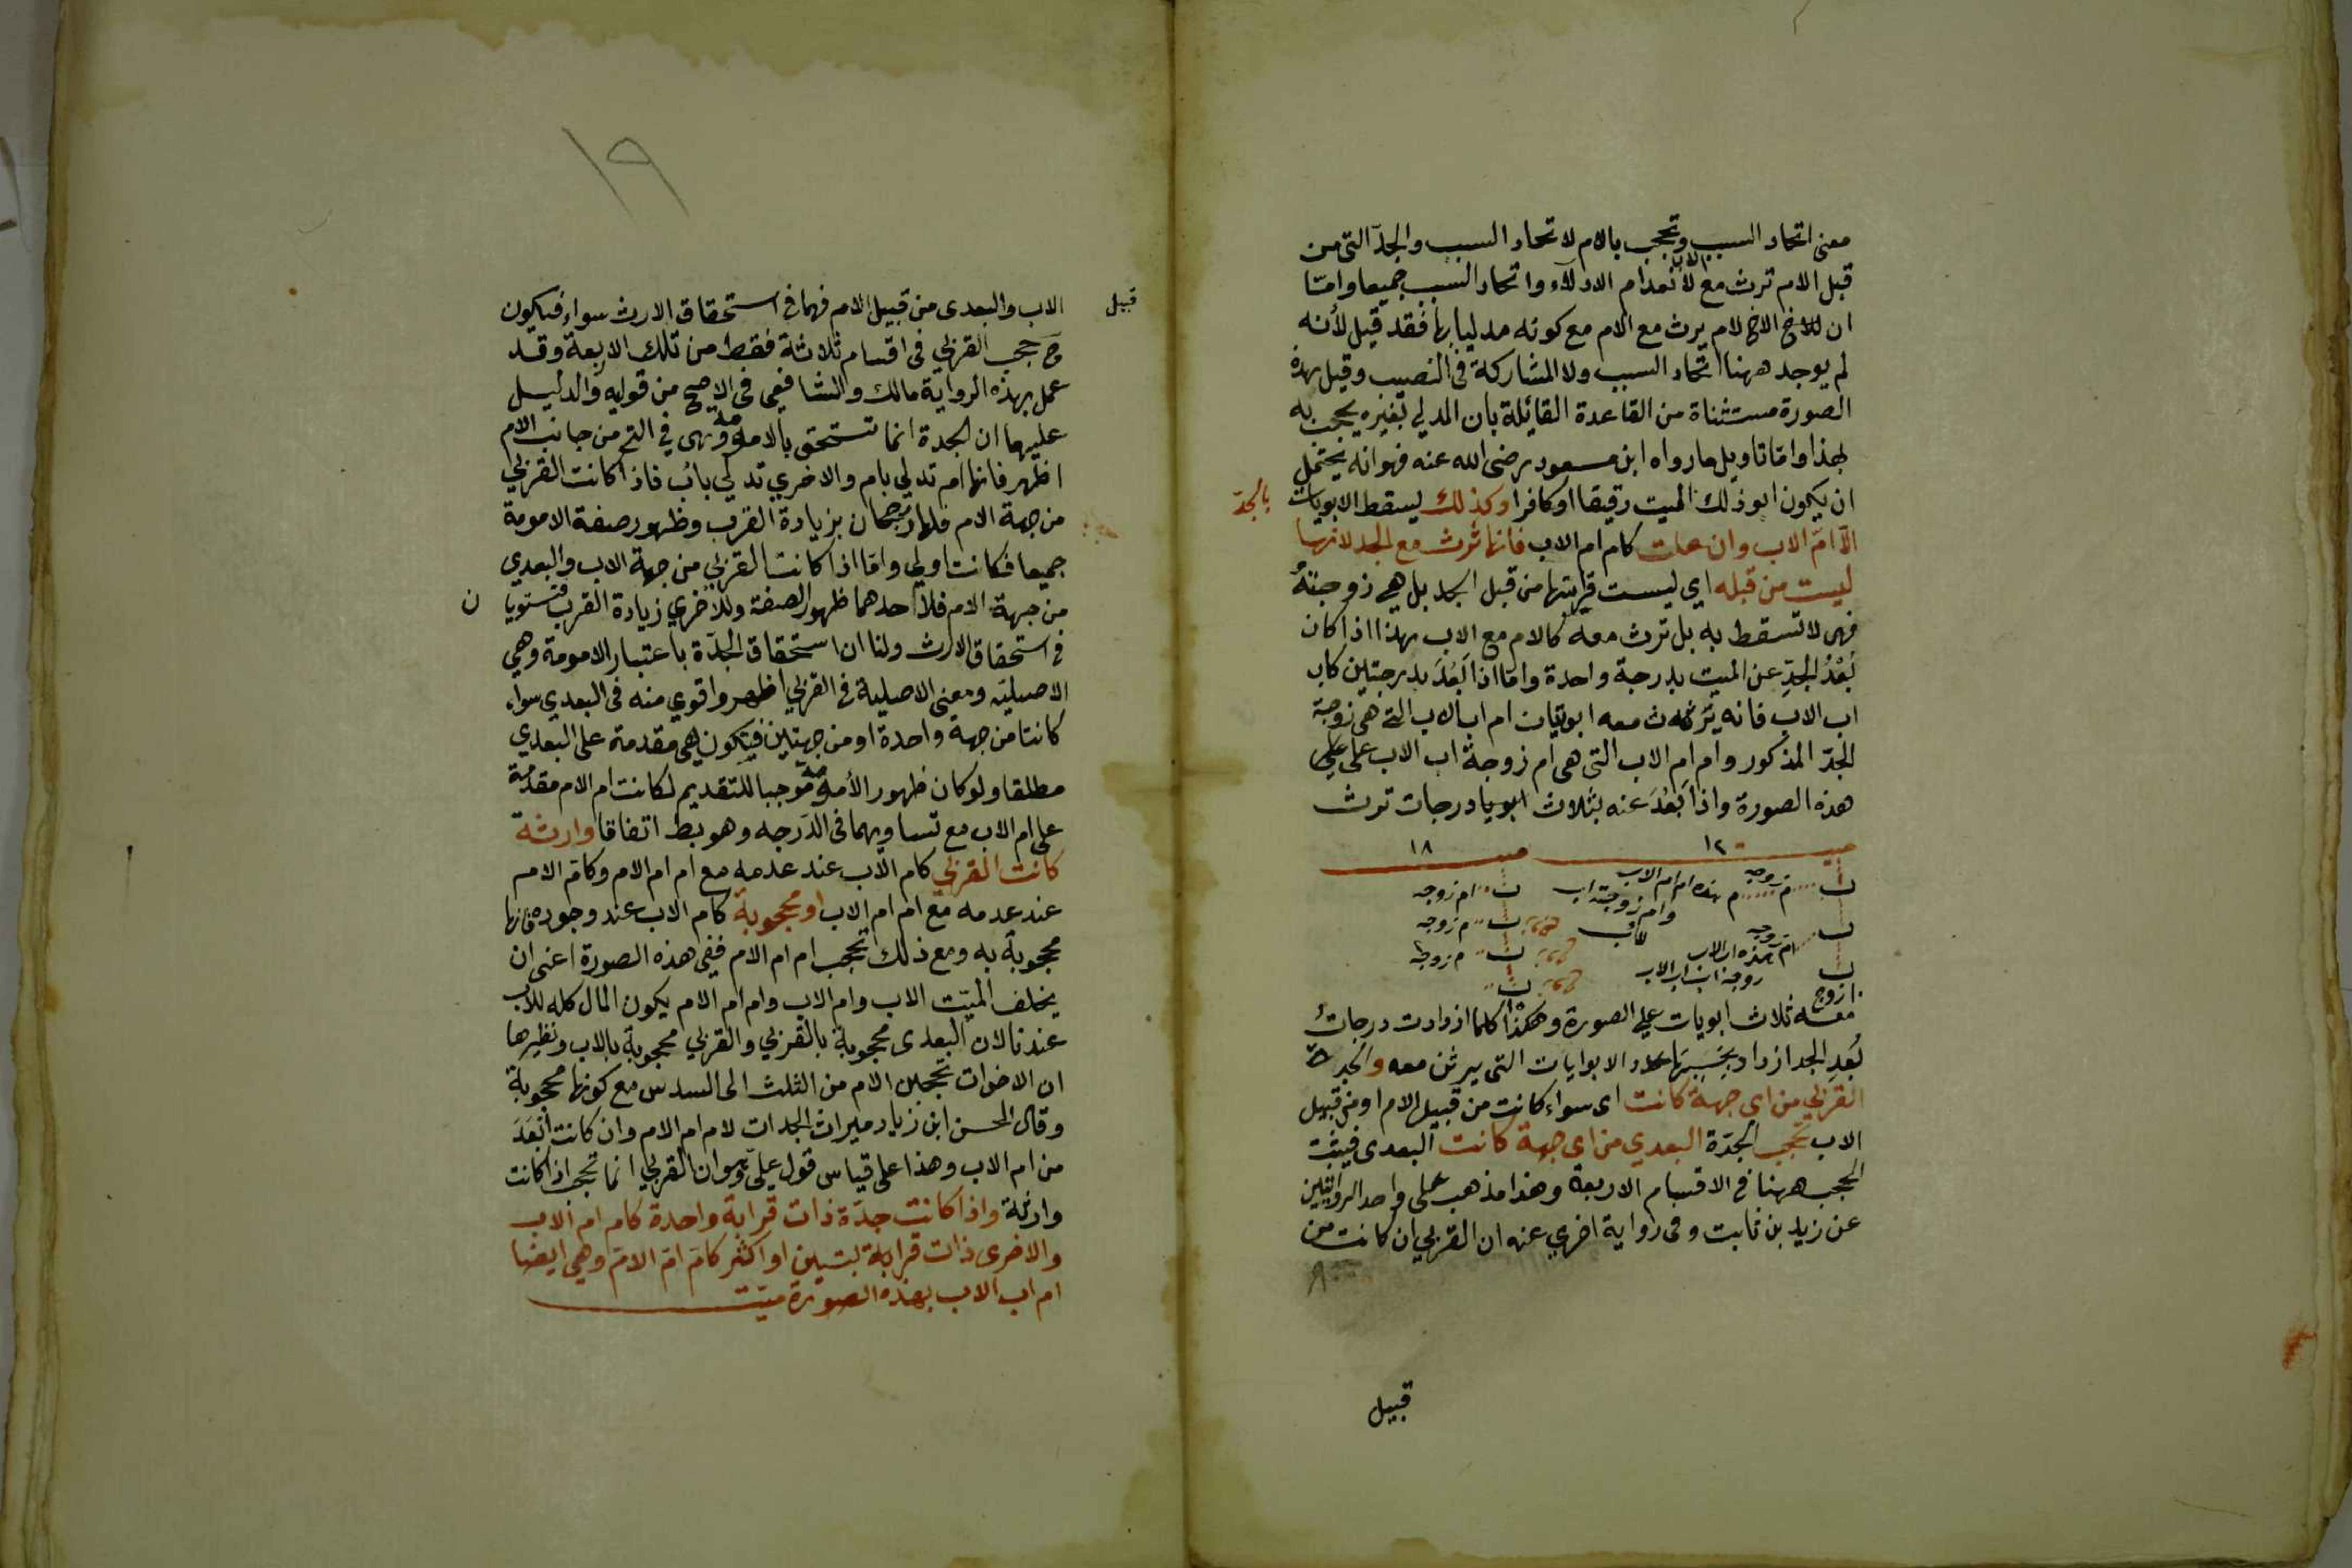 معنى اتحاد السبب وتحجب بالام لاتحاد السبب والجدة التى من
قبل الام ترث مع الاب لانعدام الادلاء واتحاد السبب جميعا وامّا
ان الاخ لام يرث مع الام مع كونه مدليا بها فقد قيل لأنه
لم يوجد ههنا اتحاد السبب ولا المشاركة فى النصيب وقيل هذه
الصورة مستثناة من القاعدة القائلة بان المدلي بغيره يحجب به
لهذا وامّا تاويل ما رواه ابن مسعود رضى الله عنه فهو انه يحتمل
ان يكون ابو ذلك الميت رقيقا او كافرا وكذلك يسقط الابويات
بالجدّ
الّا امّ الاب وان علت كام ام الاب فانها ترث مع الجد لانها
ليست من قبله اي ليست قرابتها من قبل الجد بل هي زوجتهُ
فهى لا تسقط به بل ترث معه كالام مع الاب هذا اذا كان
بُعْدُ الجدِّ عن الميت بدرجة واحدة وامّا اذا بَعُدَ بدرجتين كاب
اب الاب فانه يرث معه ابويتان ام اب الاب التى هى زوجة
الجدّ المذكور وام ام الاب التى هى ام زوجة اب الاب على
هذه الصورة واذا بَعُدَ عنه بثلاث درجات ترث
ميت ١٢ ميت ١٨
اب ام زوجه هذه ام ام الاب اب ام زوجه
وام زوجة اب
اب زوجه اب ام زوجه
ام هذه اب الاب اب ام زوجها
اب زوجة اب اب الاب
زوج
معه ثلاث ابويات علي الصورة وهكذا كلما ازدادت درجاتُ
بُعدِ الجد ازداد بحَسَبِهَا عدد الابوايات التى يرثن معه والجدة
القربي من اي جهة كانت اى سواء كانت من قبيل الام او من قبيل
الاب تحجب الجدّة البعدي من اى جهة كانت البعدى فيثبت
الحجب ههنا في الاقسام الاربعة وهذا مذهب على واحد الروايتين
عن زيد بن ثابت وفى رواية اخري عنه ان القربي ان كانت من
قبيل
١٩
قبيل
الاب والبعدى من قبيل الام فهما في استحقاق الارث سواء فيكون
ح حجب القربي فى اقسام ثلاثة فقط من تلك الاربعة وقد
عمل بهذه الرواية مالك والشافعي فى الاصح من قوليه والدليل
عليهما ان الجدة انما تستحق بالامومة وهى في التي من جانب الام
اظهر فانها ام تدلي بام والاخري تدلي باب فاذا كانت القربي
من جهة الام فلها رجحان بزيادة القرب وظهور صفة الامومة
جميعا فكانت اولي وامّا اذا كانت القربي من جهة الاب والبعدي
من جهة الام فلاحدهما ظهور الصفة وللاخري زيادة القرب فتستويا
ن
في استحقاق الارث ولنا ان استحقاق الجدّة باعتبار الامومة وهي
الاصليّه ومعنى الاصلية فى القربي اظهر واقوي منه فى البعدي سواء
كانتا من جهة واحدة او من جهتين فتكون هى مقدمة على البعدي
مطلقا ولو كان ظهور الأمومة موجبا للتقديم لكانت ام الام مقدمة
على ام الاب مع تساويهما فى الدّرجه وهو بط اتفاقا وارثة
كانت القربي كام الاب عند عدمه مع ام ام الام وكام الام
عند عدمه مع ام ام الاب او محجوبة كام الاب عند وجوده فانها
محجوبة به ومع ذلك تحجب ام ام الام ففى هذه الصورة اعنى ان
يخلف الميّت الاب وام الاب وام ام الام يكون المال كله للاب
عندنا لان البعدى محجوبة بالقربي والقربي محجوبة بالاب ونظيرها
ان الاخوات تحجبن الام من الثلث الى السدس مع كونها محجوبة
وقال الحسن ابن زياد ميراث الجدات لام ام الام وان كانت ابْعَدَ
من ام الاب وهذا على قياس قول علىّ وهو ان القربي انما تحجب اذا كانت
وارثة واذا كانت جدّة ذات قرابة واحدة كام ام الاب
والاخرى ذات قرابتين او اكثر كام امّ الامّ وهي ايضا
ام اب الاب بهذه الصورة ميّت